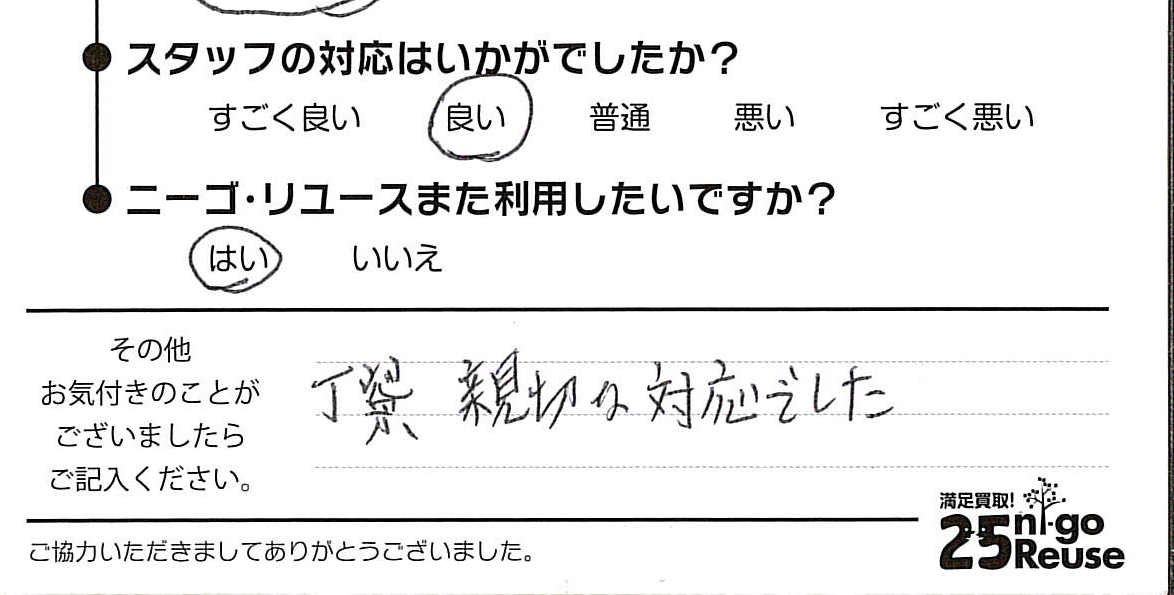 スタッフの対応はいかがでしたか？
すごく良い 良い 普通 悪い すごく悪い
ニーゴ・リユースまた利用したいですか？
はい いいえ
その他
お気付きのことが
ございましたら
ご記入ください。
丁寧 親切な対応でした
満足買取!
25 ni-go
Reuse
ご協力いただきましてありがとうございました。